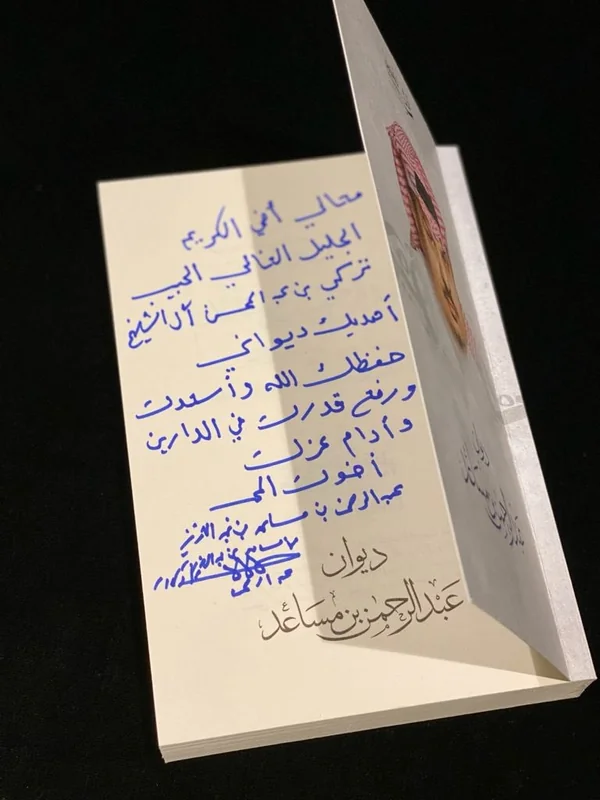 معالي أخي الكريم
الجليل الغالي الحبيب
تركي بن عبد المحسن آل الشيخ
أهديك ديواني
حفظك الله وأسعدك
ورفع قدرك في الدارين
وأدام عزك
أخوك المحب
عبدالرحمن بن مساعد بن عبدالعزيز
ديوان
عبدالرحمن بن مساعد